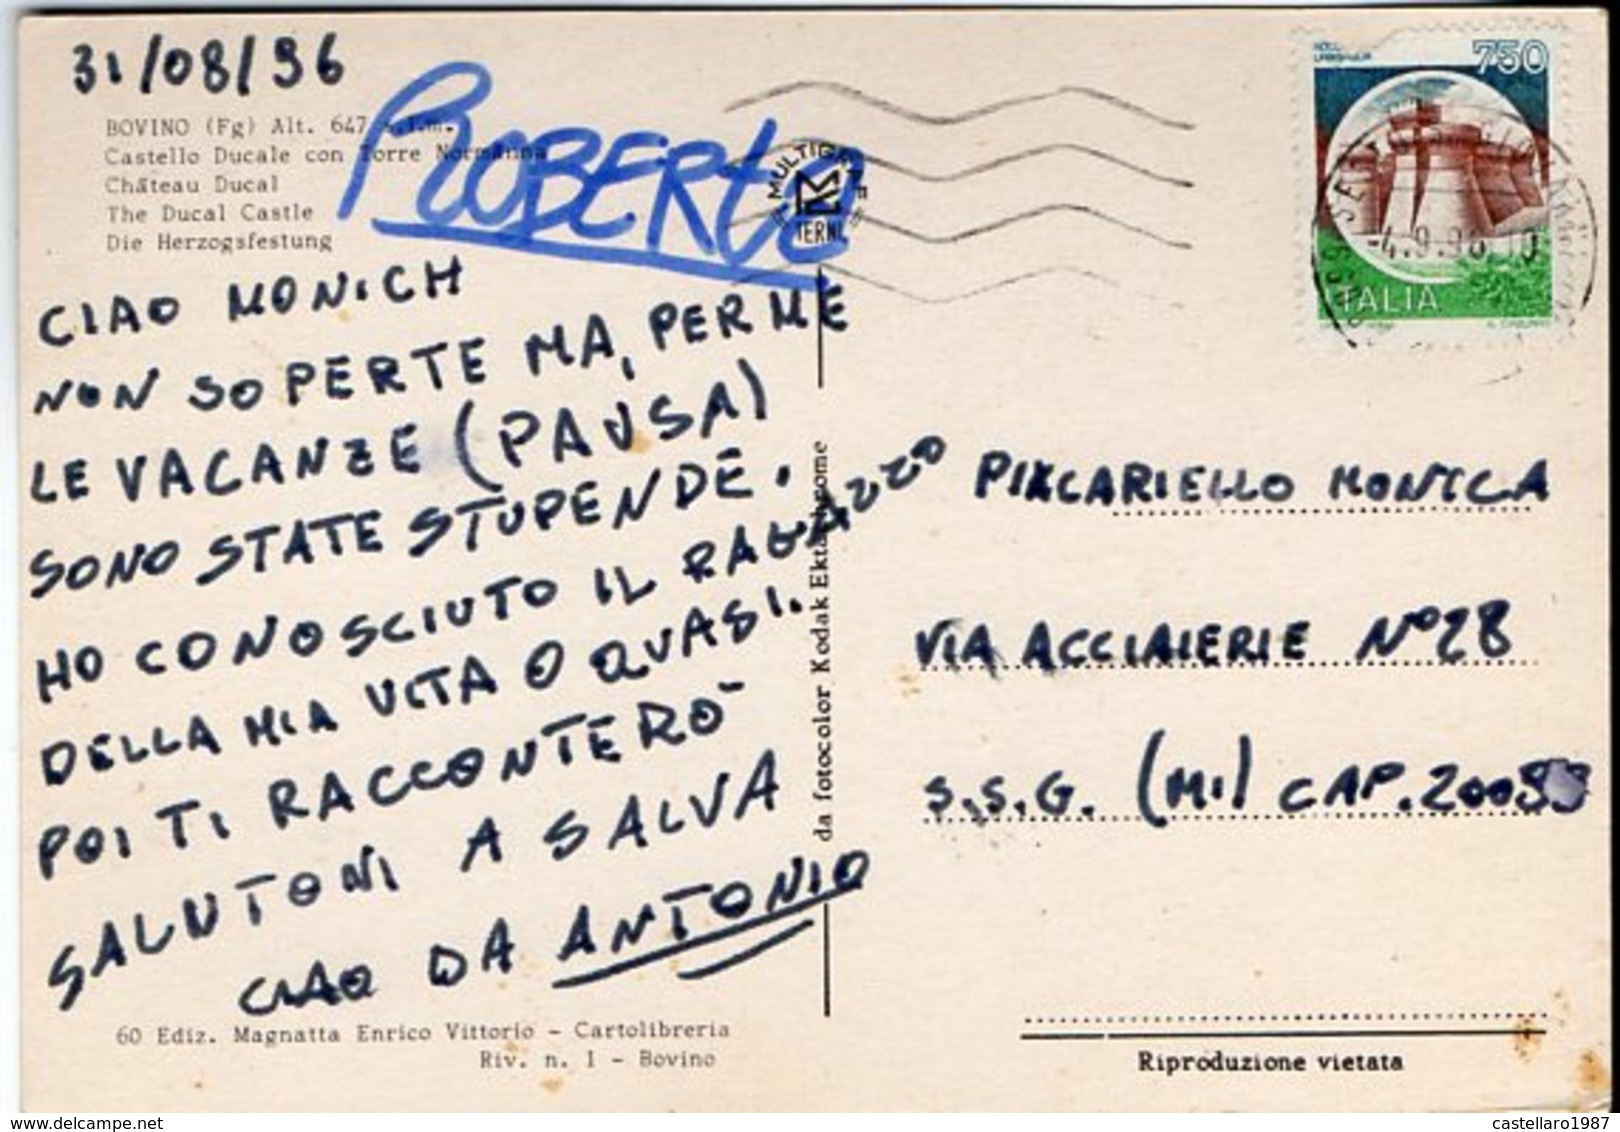 31/08/96
BOVINO (Fg) Alt. 647 s.l.m.
Castello Ducale con Torre Normanna
Château Ducal
The Ducal Castle
Die Herzogsfestung
ROBERTO
CIAO MONICH
NON SO PERTE MA, PER ME
LE VACANZE (PAUSA)
SONO STATE STUPENDE.
HO CONOSCIUTO IL RAGAZZO
DELLA MIA VITA O QUASI.
POI TI RACCONTERÒ
SALUTONI A SALVA
CIAO DA ANTONIO
60 Ediz. Magnatta Enrico Vittorio - Cartolibreria
Riv. n. 1 - Bovino
da fotocolor Kodak Ektachrome
MULTIGRAF
TERNI
750
ITALIA
-4.9.96.10
CARIELLO MONICA
VIA ACCIAIERIE Nº 28
S.S.G. (MI) CAP. 20099
Riproduzione vietata
castellaro1987